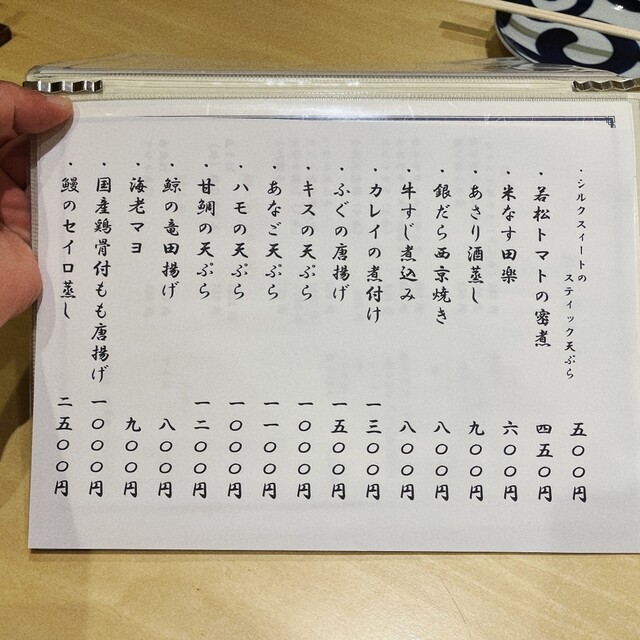 ・シルクスィートの
スティック天ぷら 五〇〇円
・若松トマトの密煮 四五〇円
・米なす田楽 六〇〇円
・あさり酒蒸し 九〇〇円
・銀だら西京焼き 八〇〇円
・牛すじ煮込み 八〇〇円
・カレイの煮付け 一三〇〇円
・ふぐの唐揚げ 一五〇〇円
・キスの天ぷら 一〇〇〇円
・あなご天ぷら 一一〇〇円
・ハモの天ぷら 一〇〇〇円
・甘鯛の天ぷら 一二〇〇円
・鯨の竜田揚げ 八〇〇円
・海老マヨ 九〇〇円
・国産鶏骨付もも唐揚げ 一〇〇〇円
・鰻のセイロ蒸し 二五〇〇円